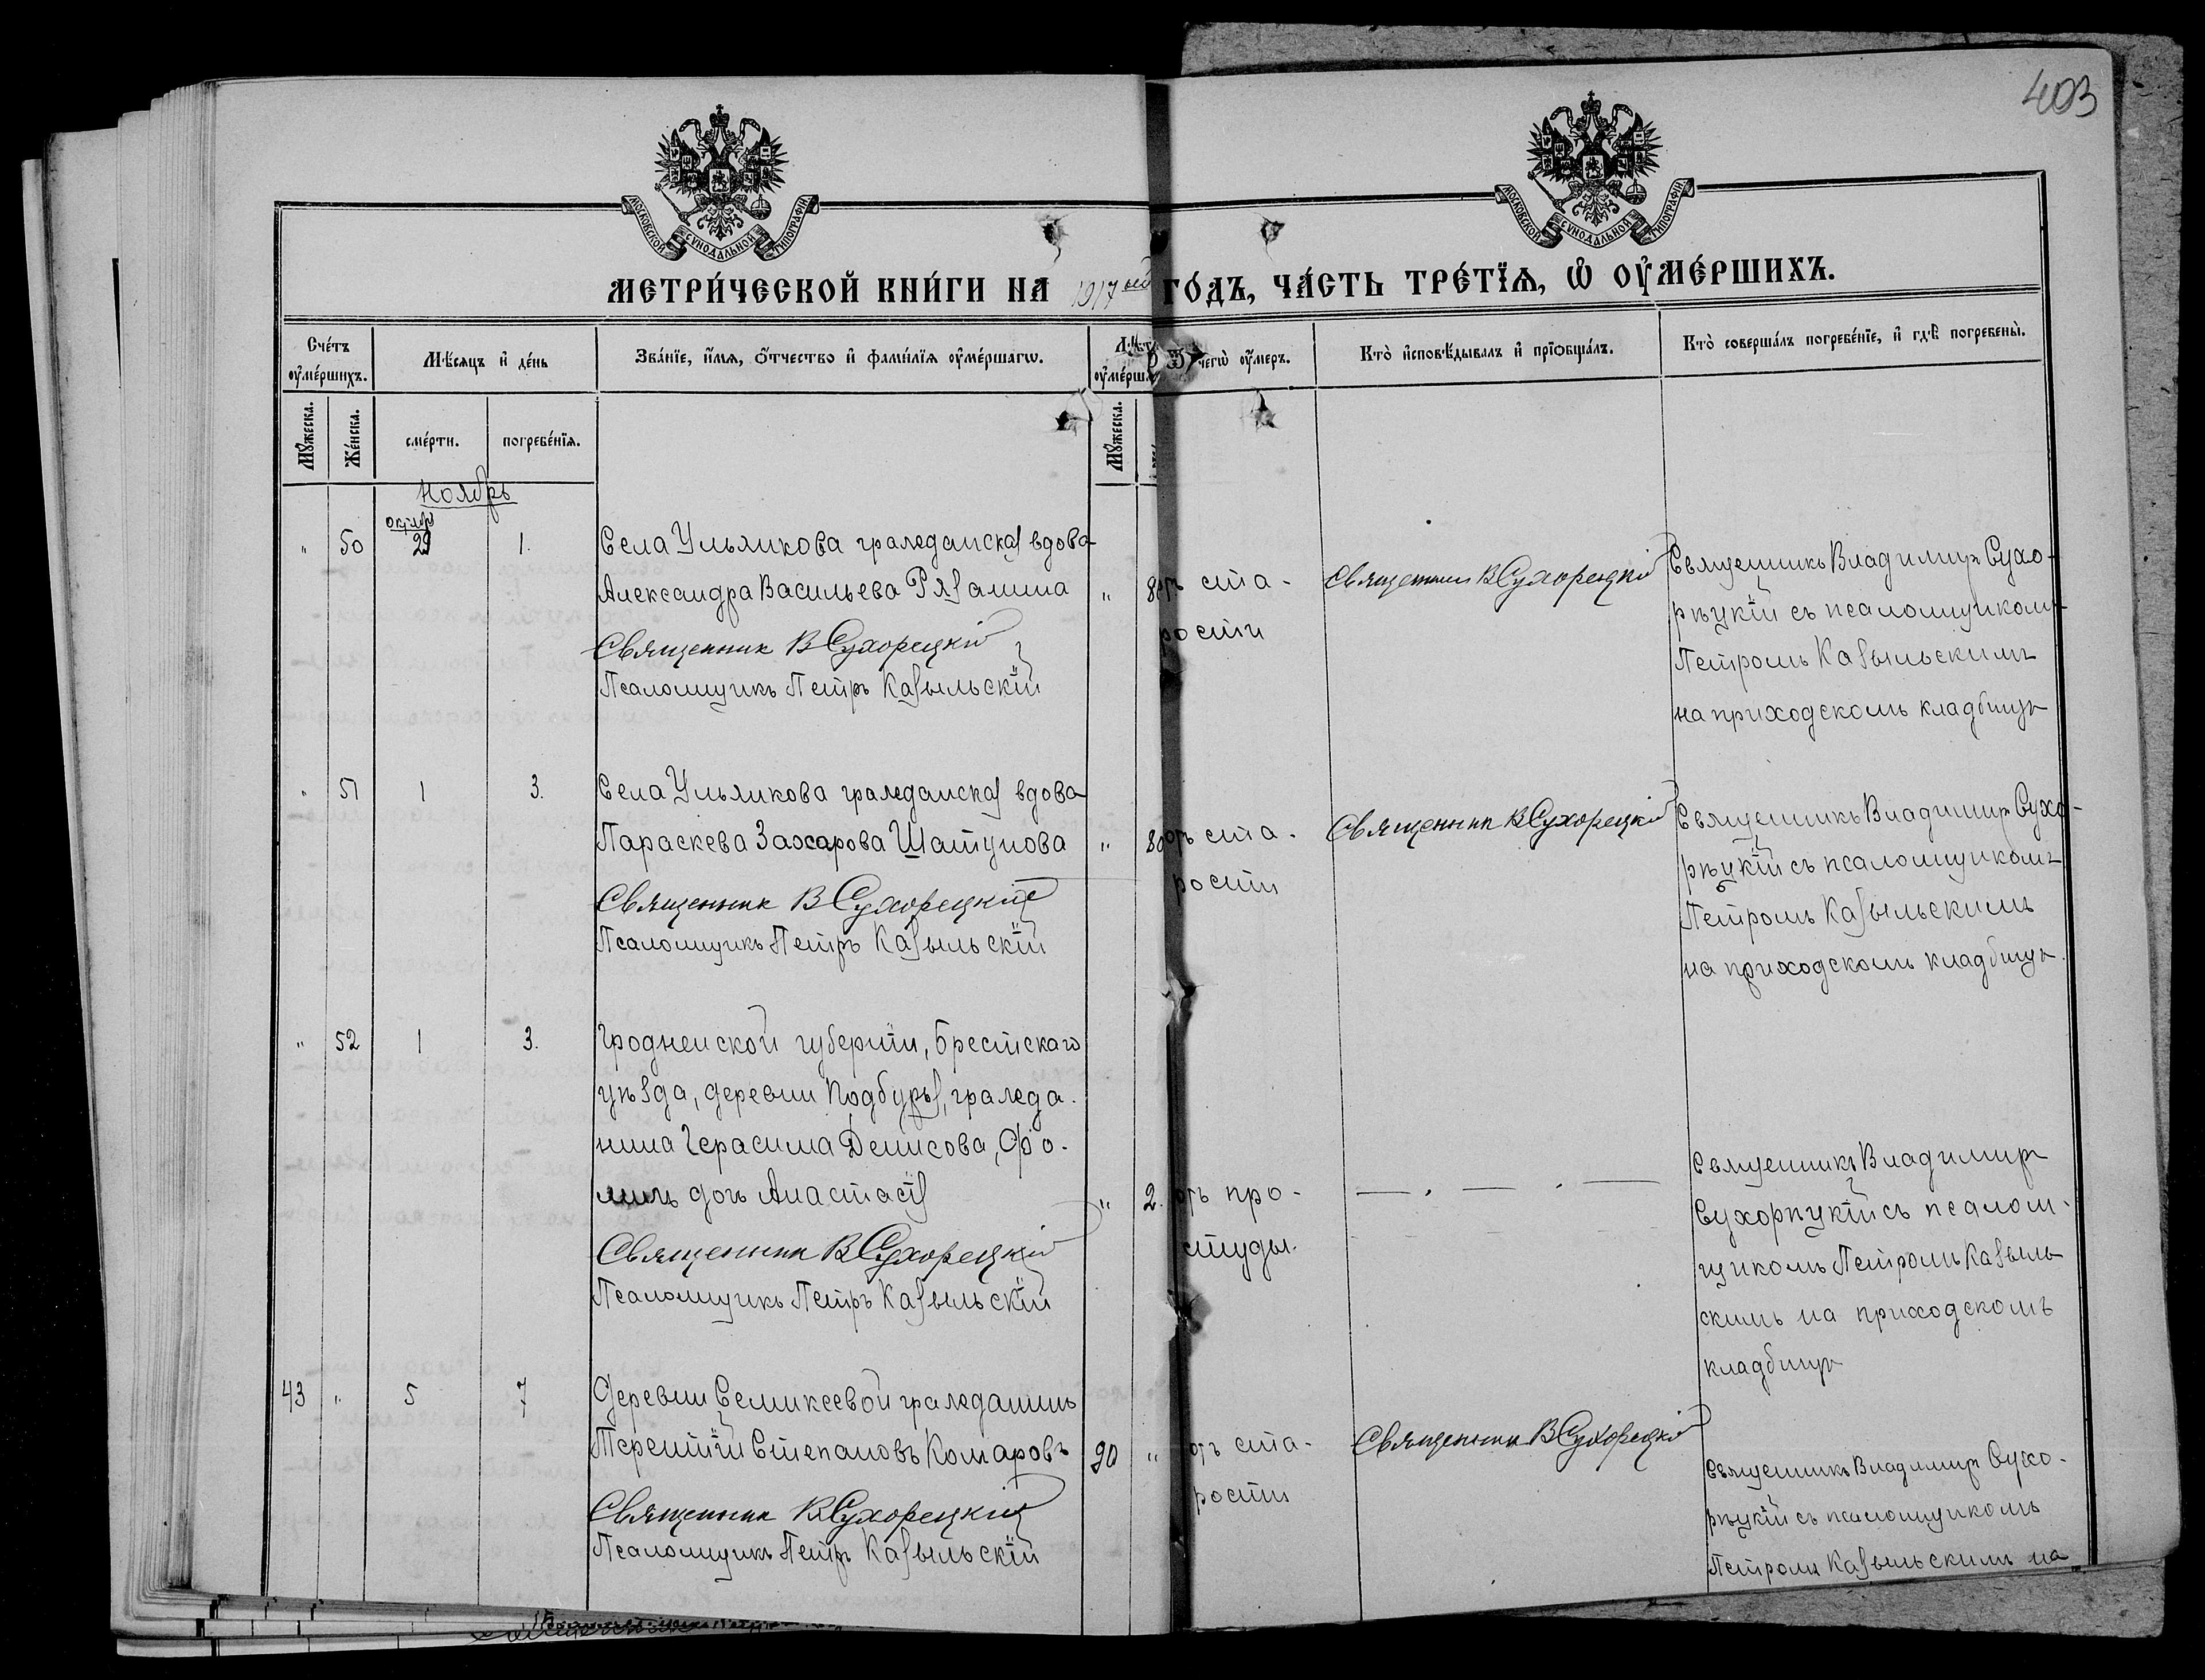 403
МОСКОВСКОЙ СѴНОДАЛЬНОЙ ТИПОГРАФІИ.
МОСКОВСКОЙ СѴНОДАЛЬНОЙ ТИПОГРАФІИ.
МЕТРИ́ЧЕСКОЙ КНИ́ГИ НА 1917 ый ГО́ДЪ, ЧА́СТЬ ТРЕ́ТЇѦ, Ѡ҆ ОУ҆МЕ́РШИХЪ.
Сче́тъ оу҆ме́ршихъ.
Мѣ́сяцъ и҆ де́нь
Зва́нїе, и҆́мя, ѻ҆́тчество и҆ фами́лїя оу҆ме́ршагѡ.
Лѣт оу҆ме́рша
чегѡ̀ оу҆́меръ.
Кто̀ и҆сповѣ́дывалъ и҆ прїѡбща́лъ.
Кто̀ соверша́лъ погребе́нїе, и҆ гдѣ̀ погребены̀.
Мꙋ́жеска.
Же́нска.
сме́рти.
погребе́нїя.
Мꙋ́жеска.
Ноябрь
" 50 октяб 29 1.
Села Ульянкова гражданская вдова
Александра Васильева Рязанина
Священник В Сухорецкій
Псаломщикъ Петръ Казыльскій
" 80 отъ ста-
рости
Священник В Сухорецкій
Священникъ Владимиръ Сухо-
рѣцкій съ псаломщикомъ
Петромъ Казыльскимъ
на приходскомъ кладбищѣ
" 51 1 3.
Села Ульянкова гражданская вдова
Параскева Захарова Шатунова
Священник В Сухорецкій
Псаломщикъ Петръ Казыльскій
" 80 отъ ста-
рости
Священник В Сухорецкій
Священникъ Владимиръ Сухо-
рѣцкій съ псаломщикомъ
Петромъ Казыльскимъ
на приходскомъ кладбищѣ.
" 52 1 3.
Гродненской губерніи, Брестскаго
уѣзда, деревни Подбурья, гражда-
нина Герасима Денисова, Фо-
минъ дочь Анастасія
Священник В Сухорецкій
Псаломщикъ Петръ Казыльскій
" 2. отъ про-
студы.
Священникъ Владимиръ
Сухорѣцкій съ псалом-
щикомъ Петромъ Казыль
скимъ на приходскомъ
кладбищѣ
43 " 5 7
Деревни Семикеевой гражданинъ
Терентій Степановъ Комаровъ
Священник В Сухорецкій
Псаломщикъ Петръ Казыльскій
90 " отъ ста-
рости
Священник В Сухорецкій
Священникъ Владимиръ Сухо-
рѣцкій съ псаломщикомъ
Петромъ Казыльскимъ на